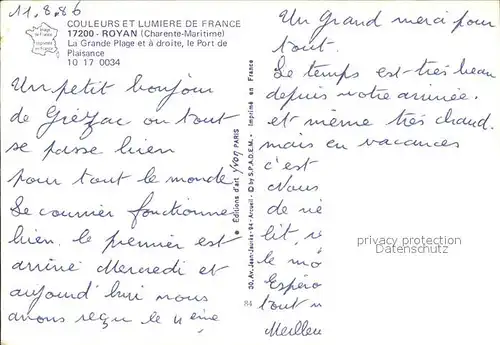 11.8.86
COULEURS ET LUMIERE DE FRANCE
17200 - ROYAN (Charente-Maritime)
La Grande Plage et à droite, le Port de
Plaisance
10 17 0034
Un petit bonjour
de Grézac ou tout
se passe bien
pour tout le monde
Le courrier fonctionne
bien. le premier est
arrivé Mercredi et
aujourd'hui nous
avons reçu le
Editions d'art Yvon PARIS
30, Av. Jean-Jaurès - 94 - Arcueil - © by S.P.A.D.E.M. - Imprimé en France
84
Un Grand merci pour
tout.
Le temps est très beau
depuis notre arrivée.
et même très chaud.
mais en vacances
c'est
Nous
de
lit,
le
Espéro
tout
Meilleu
privacy protection
Datenschutz